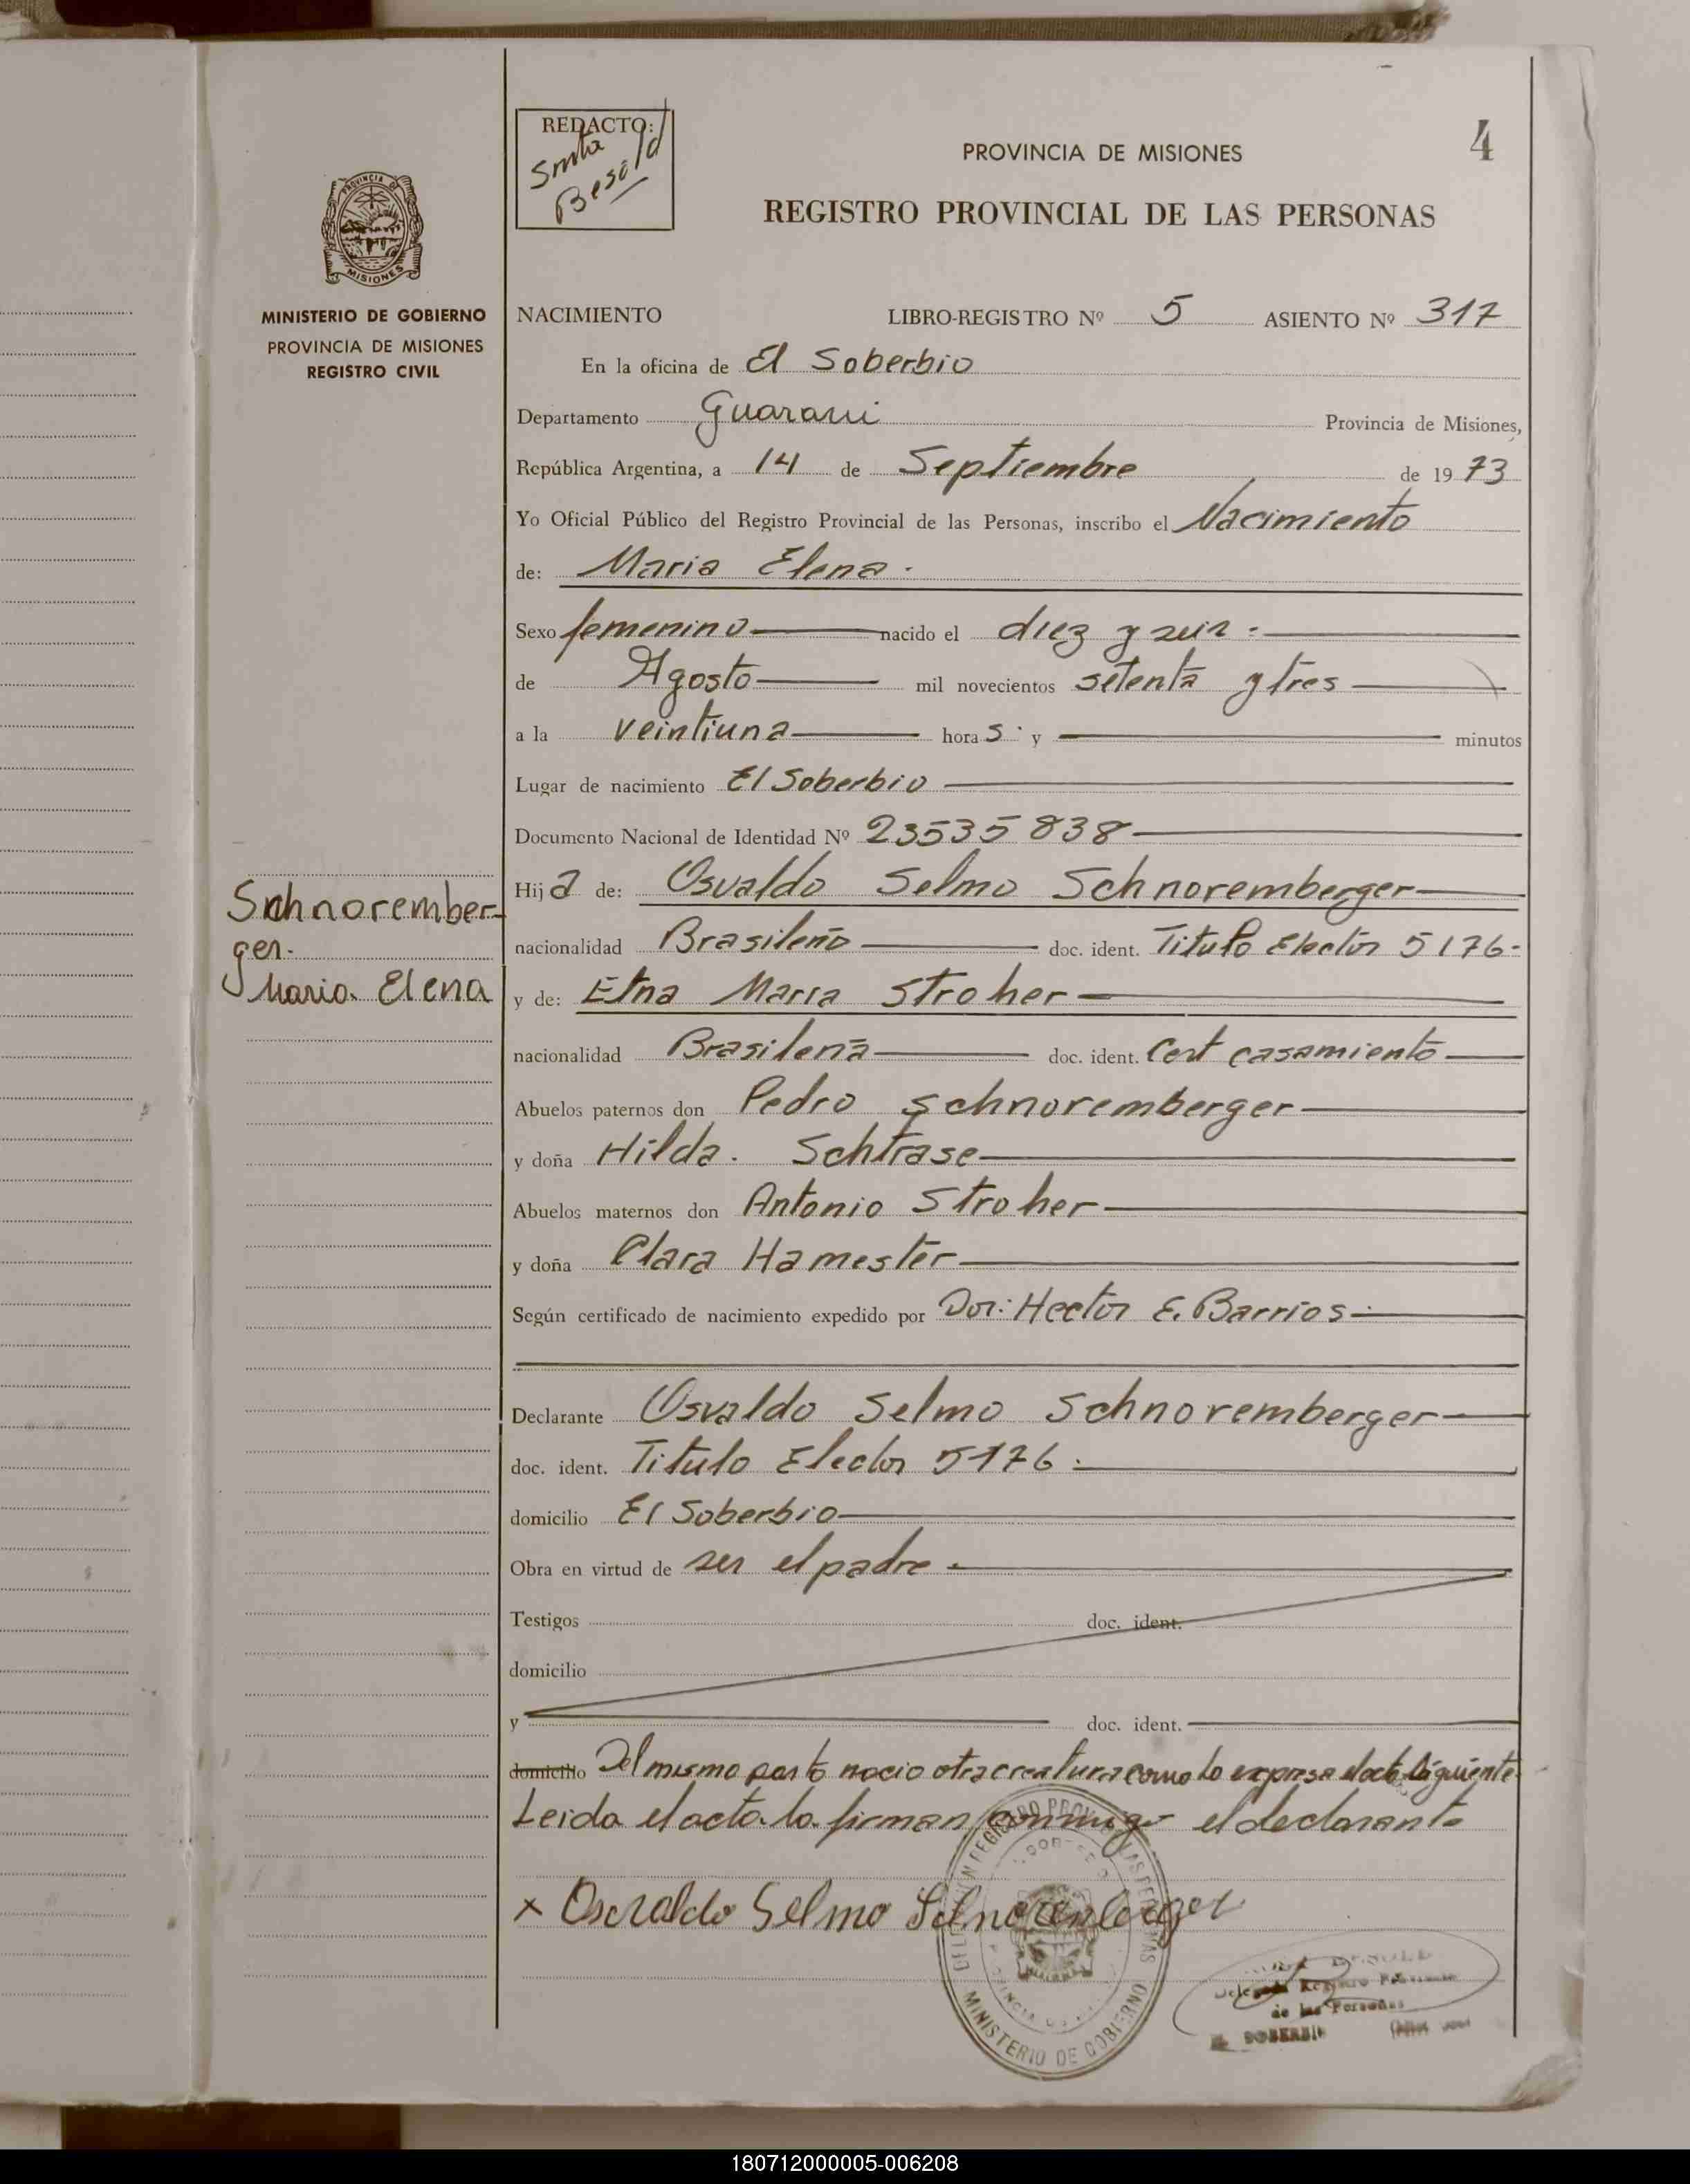 REDACTO:
Smta
Besold
4
PROVINCIA DE MISIONES
REGISTRO PROVINCIAL DE LAS PERSONAS
PROVINCIA DE
MISIONES
MINISTERIO DE GOBIERNO
PROVINCIA DE MISIONES
REGISTRO CIVIL
NACIMIENTO LIBRO-REGISTRO Nº 5 ASIENTO Nº 317
En la oficina de El Soberbio
Departamento Guarani Provincia de Misiones,
República Argentina, a 14 de Septiembre de 1973
Yo Oficial Público del Registro Provincial de las Personas, inscribo el Nacimiento
de: Maria Elena.
Sexo femenino nacido el diez y seis
de Agosto mil novecientos setenta y tres
a la veintiuna horas y minutos
Lugar de nacimiento El Soberbio
Documento Nacional de Identidad Nº 23535838
Hija de: Osvaldo Selmo Schnoremberger
nacionalidad Brasileño doc. ident. Titulo Elector 5176
y de: Etna Maria Stroher
nacionalidad Brasileña doc. ident. Cert casamiento
Schnorember-
ger.
Maria Elena
Abuelos paternos don Pedro Schnoremberger
y doña Hilda. Schtrase
Abuelos maternos don Antonio Stroher
y doña Clara Hamester
Según certificado de nacimiento expedido por Dor: Hector E. Barrios
Declarante Osvaldo Selmo Schnoremberger
doc. ident. Titulo Elector 5176
domicilio El Soberbio
Obra en virtud de ser el padre
Testigos doc. ident.
domicilio
y doc. ident.
domicilio Del mismo parto nacio otra creatura como lo expresa el acta siguiente.
Leida el acta la firman conmigo el declarante
x Osvaldo Selmo Schnorenberger
MINISTERIO DE GOBIERNO
de las Personas
EL SOBERBIO
180712000005-006208